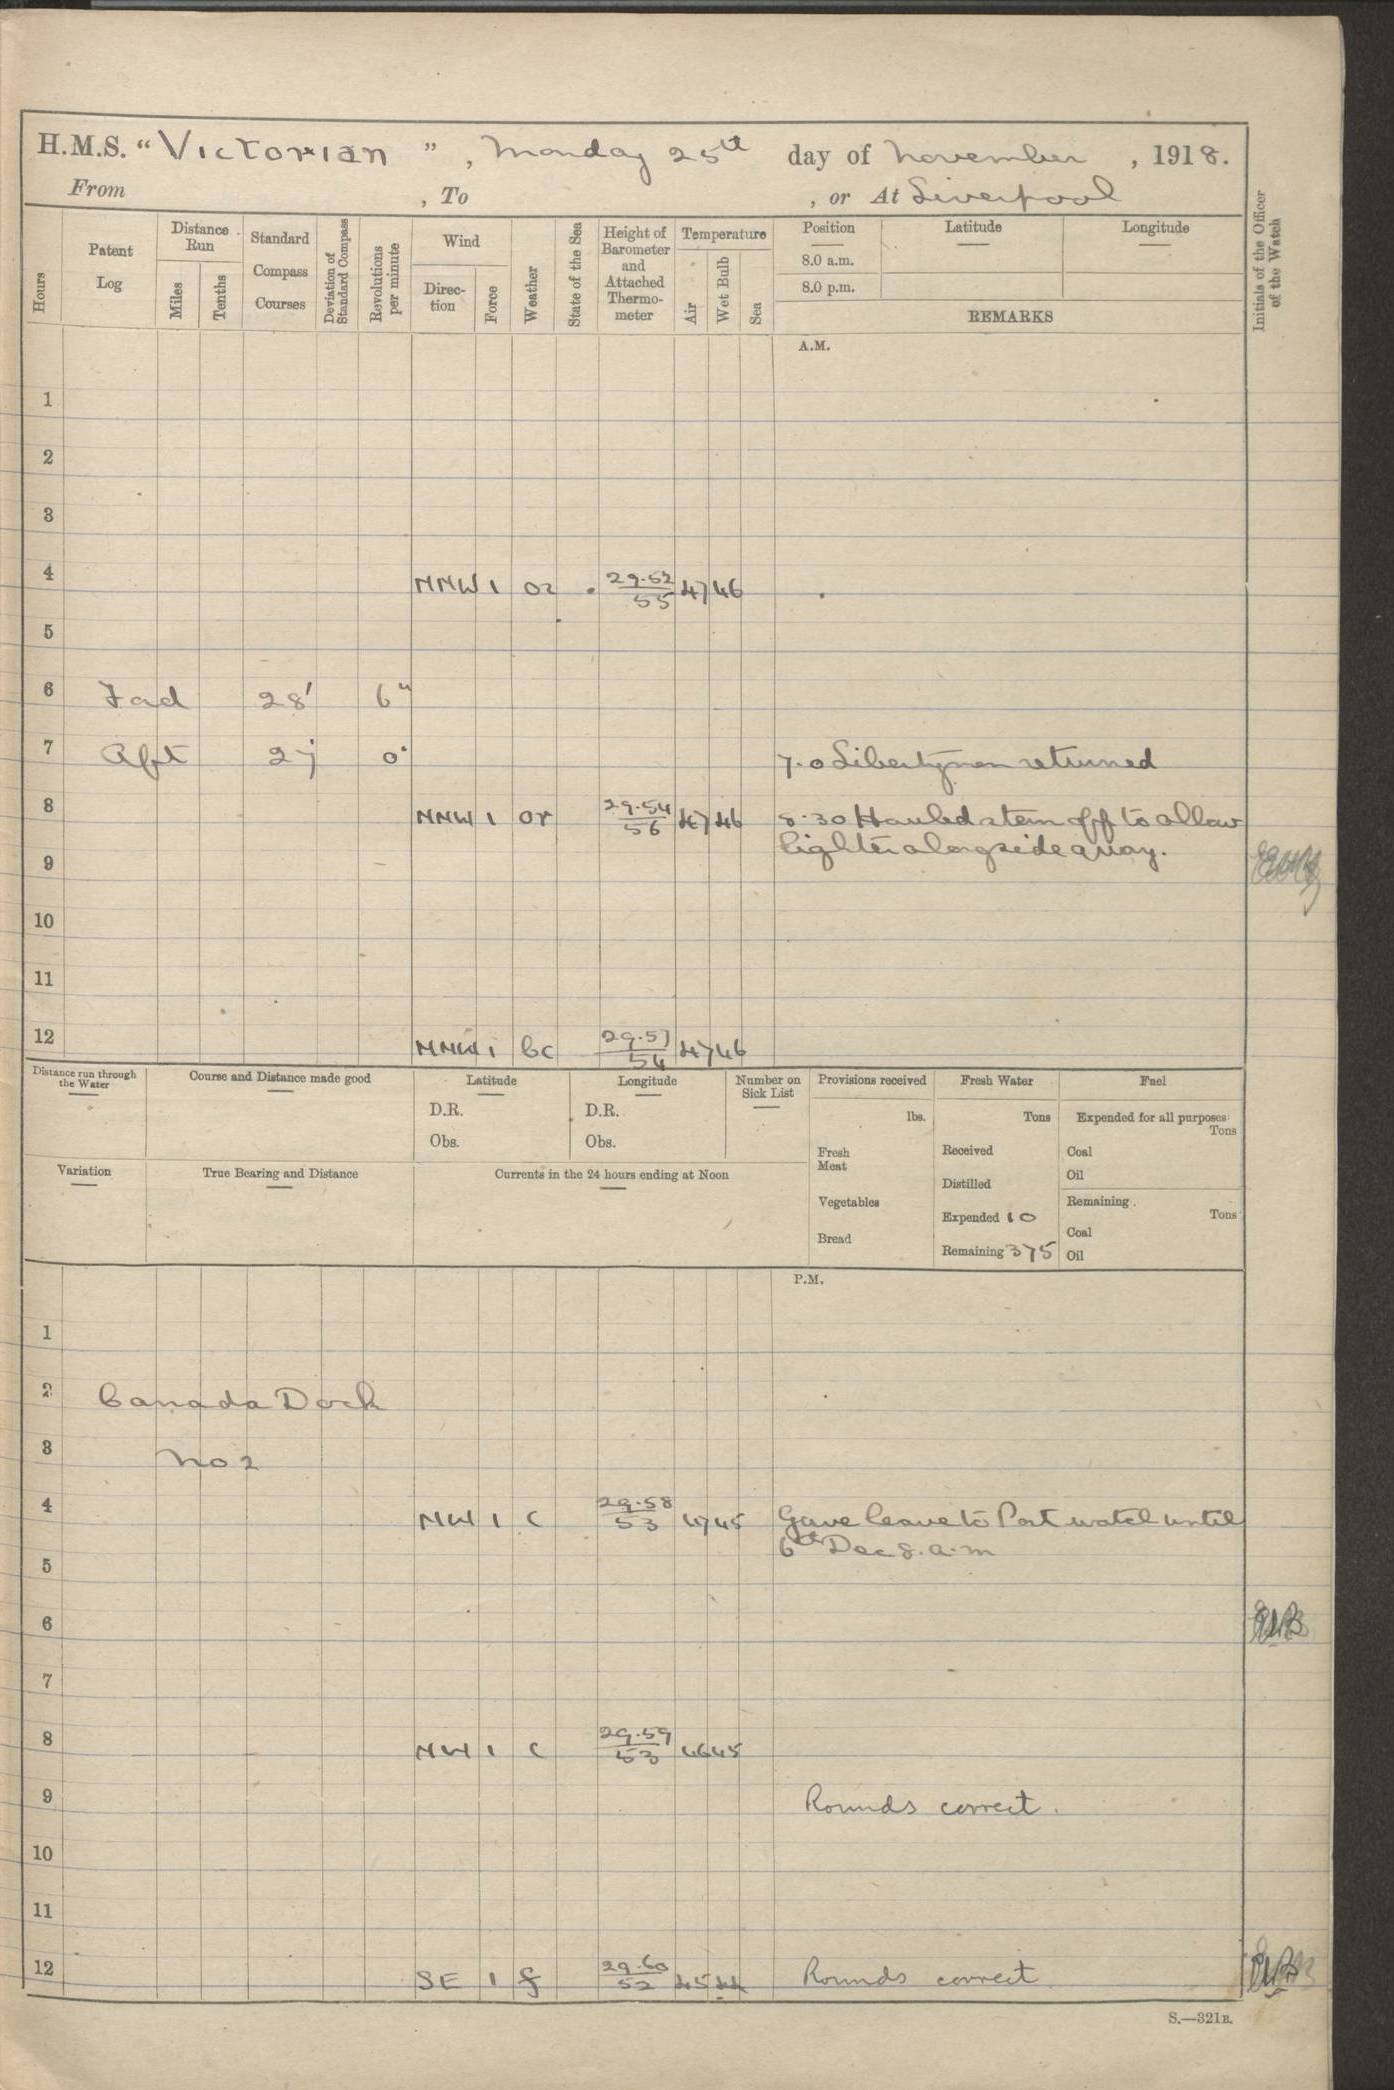 H.M.S. "Victorian", Monday 25th day of November, 1918.
From , To , or At Liverpool
Hours
Patent Log
Distance Run
Miles
Tenths
Standard Compass Courses
Deviation of Standard Compass
Revolutions per minute
Wind
Direc-tion
Force
Weather
State of the Sea
Height of Barometer and Attached Thermo-meter
Temperature
Air
Wet Bulb
Sea
Position
8.0 a.m.
8.0 p.m.
Latitude
Longitude
REMARKS
Initials of the Officer of the Watch
A.M.
1
2
3
4 NNW 1 or 29.52/55 47 46
5
6 Fad 28' 6"
7 Aft 27 0" 7.0 Libertymen returned
8 NNW 1 or 29.54/56 47 46 8.30 Hauled stern off to allow
lighter alongside quay.
9
10
11
12 NNW 1 bc 29.57/54 47 46
Distance run through the Water
Course and Distance made good
Latitude
D.R.
Obs.
Longitude
D.R.
Obs.
Number on Sick List
Provisions received
lbs.
Fresh Meat
Vegetables
Bread
Fresh Water
Tons
Received
Distilled
Expended 10
Remaining 375
Fuel
Expended for all purposes
Tons
Coal
Oil
Remaining
Tons
Coal
Oil
Variation
True Bearing and Distance
Currents in the 24 hours ending at Noon
P.M.
1
2 Canada Dock
3 No 2
4 NW 1 c 29.58/53 47 45 Gave leave to Port watch until
6th Dec 8. a.m
5
6
7
8 NW 1 c 29.59/53 46 45
9 Rounds correct.
10
11
12 SE 1 f 29.60/52 45 44 Rounds correct
S.—321B.